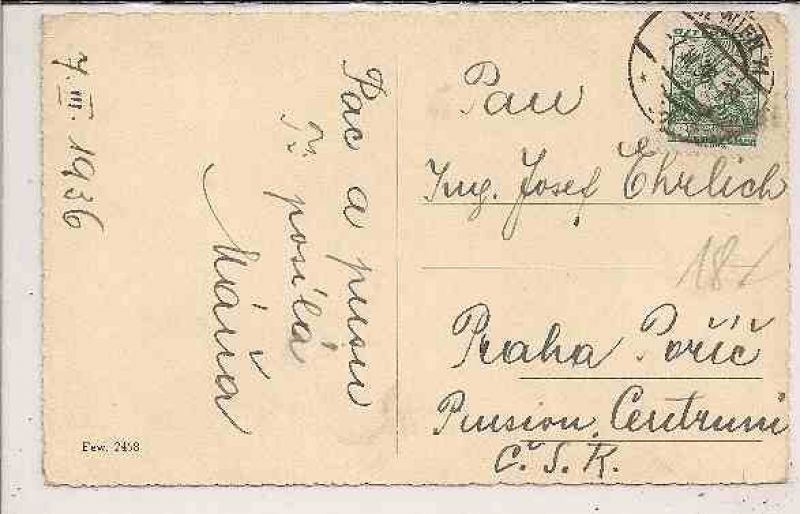 7. III. 1936
Pac a pusu
Ti posílá
Máňa
Pan
Ing. Josef Ehrlich
18-
Praha Poříč
Pension Centrum
Č. S. R.
WIEN
Few. 2458